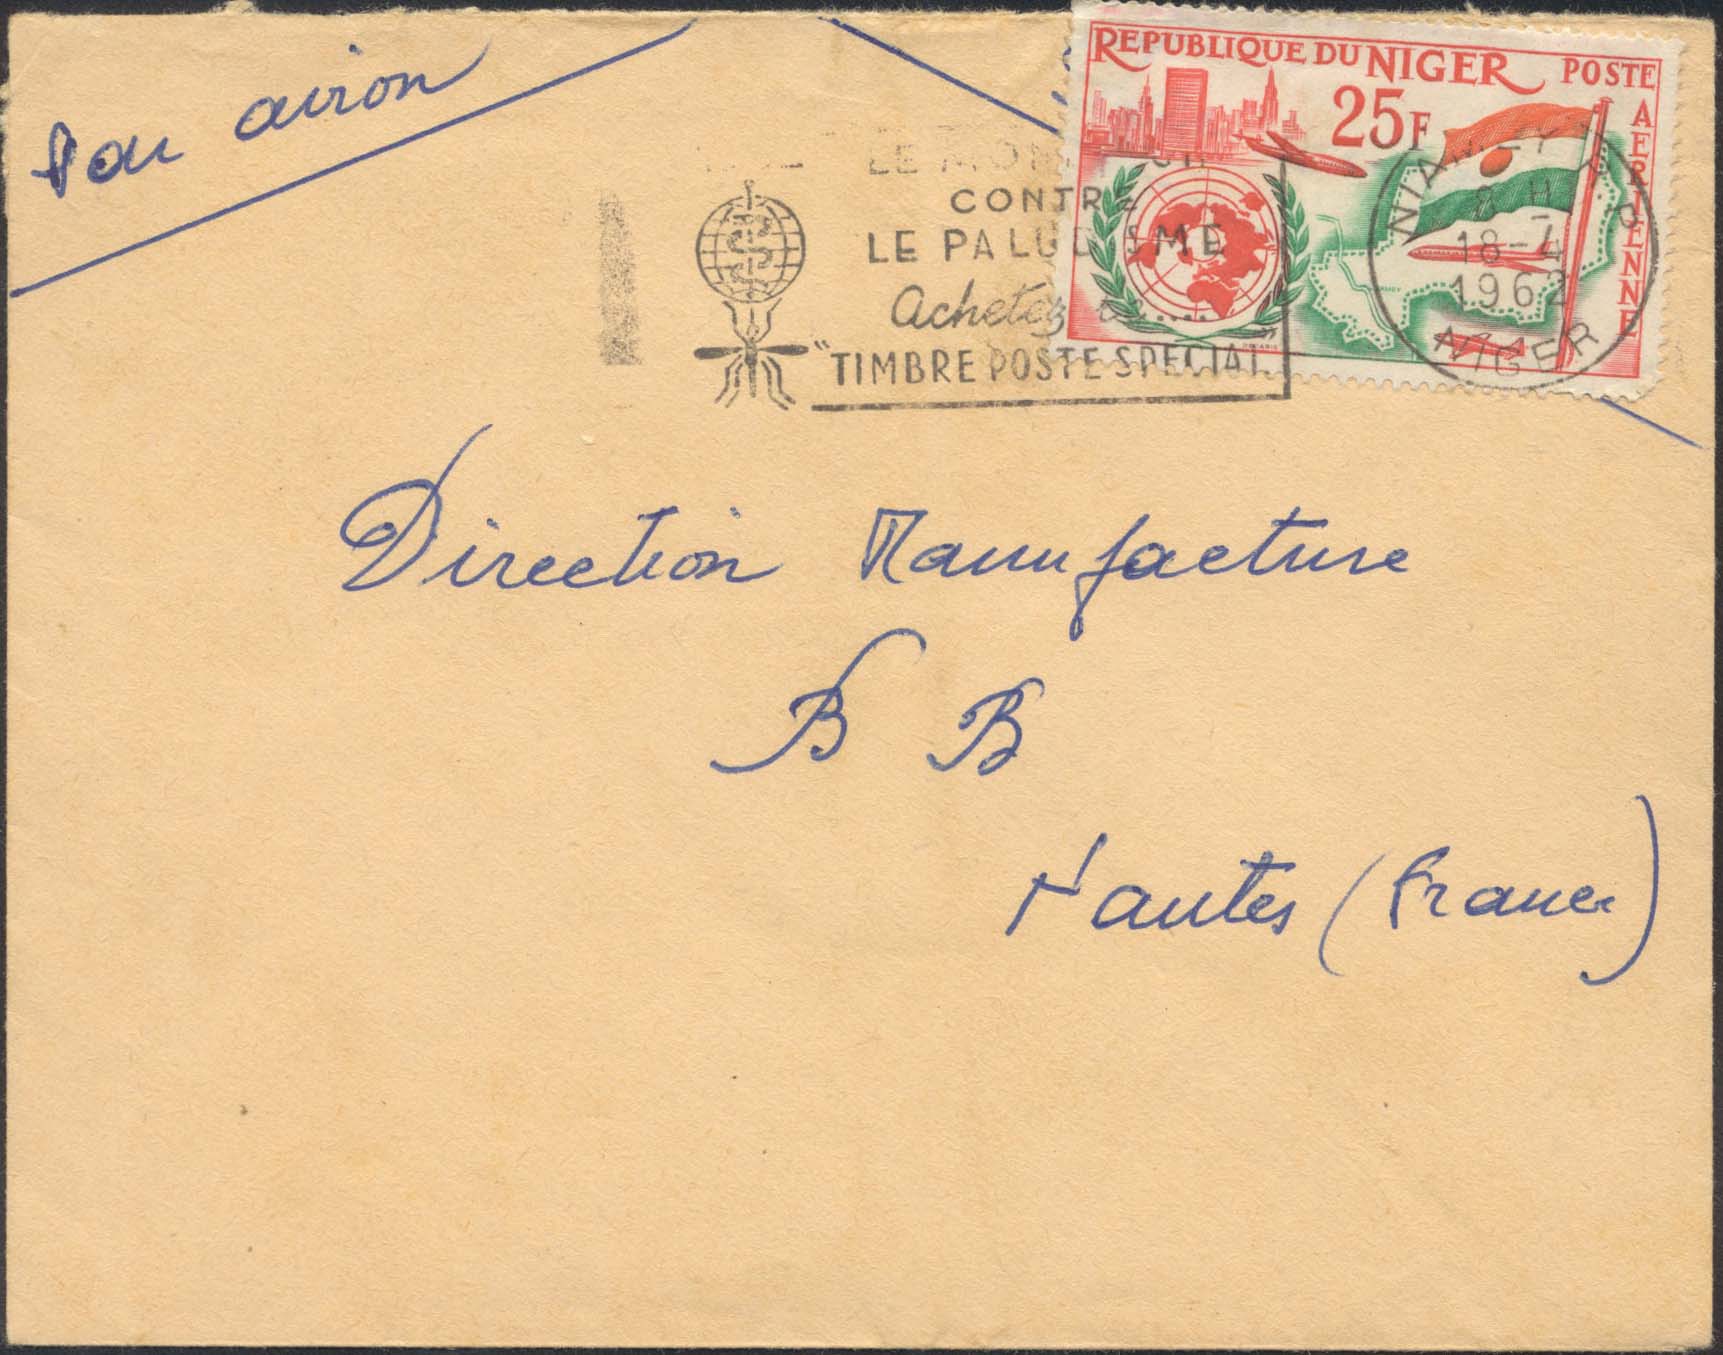 Par avion
REPUBLIQUE DU NIGER
POSTE AERIENNE
25F
LE
CONTRE
LE PALUDISME
Achetez
"TIMBRE POSTE SPECIAL
NIAMEY R P
8 H
18-4
1962
NIGER
Direction Manufacture
B B
Nantes (France)